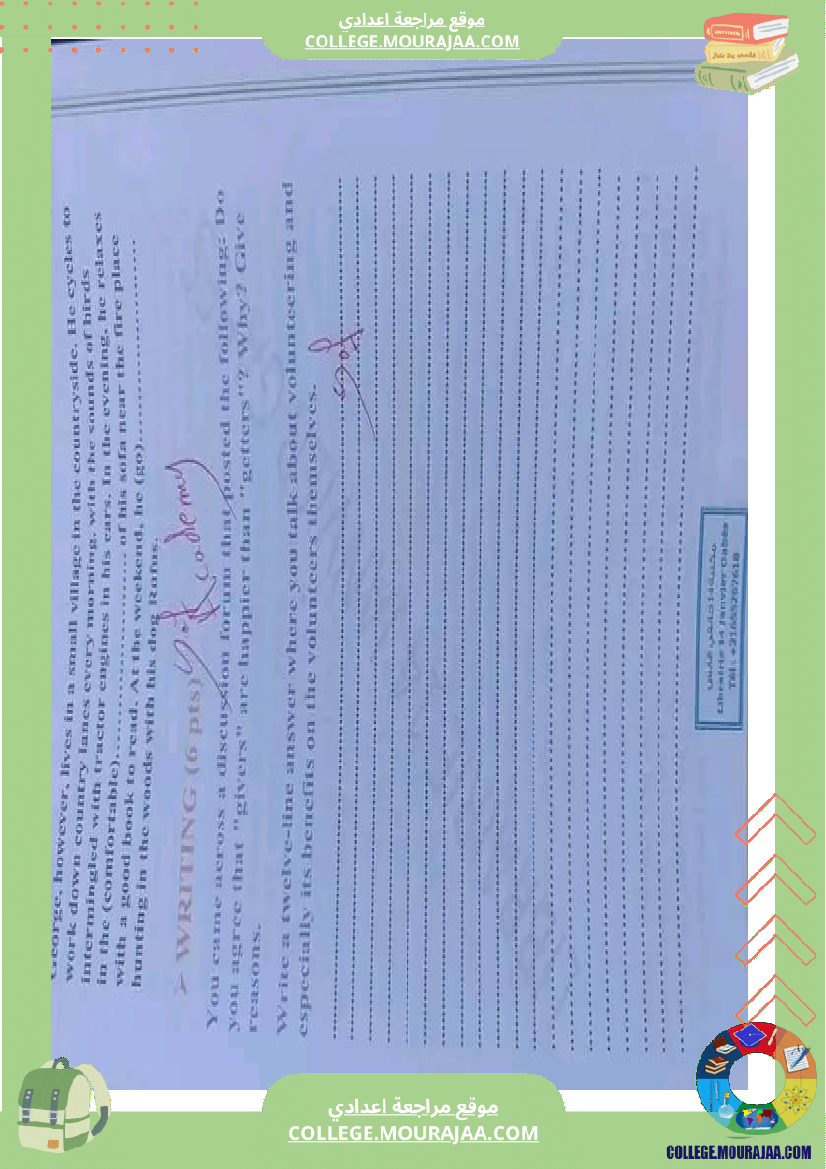 موقع مراجعة اعدادي
COLLEGE.MOURAJAA.COM
George, however, lives in a small village in the countryside. He cycles to
work down country lanes every morning, with the sounds of birds
intermingled with tractor engines in his ears. In the evening, he relaxes
in the (comfortable)........................ of his sofa near the fire place
with a good book to read. At the weekend, he (go)........................
hunting in the woods with his dog Rufus.
> WRITING (6 pts)
You came across a discussion forum that posted the following: Do
you agree that "givers" are happier than "getters"? Why? Give
reasons.
Write a twelve-line answer where you talk about volunteering and
especially its benefits on the volunteers themselves.
Librairie 14 Janvier Gabès
Tél: +21655267618
موقع مراجعة اعدادي
COLLEGE.MOURAJAA.COM
COLLEGE.MOURAJAA.COM